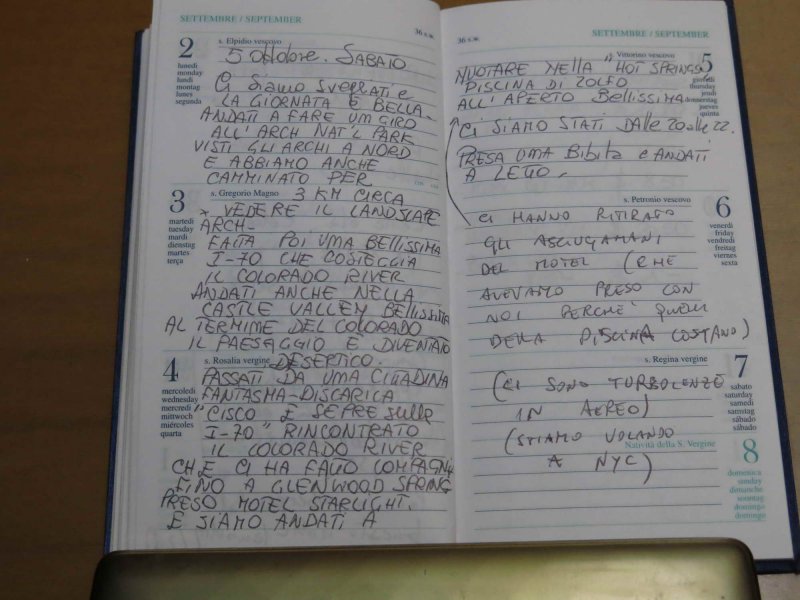 SETTEMBRE / SEPTEMBER
36 s.w.
2
s. Elpidio vescovo
lunedì
monday
lundi
montag
lunes
segunda
5 ottobre. SABATO
Ci siamo svegliati e
LA GIORNATA È BELLA-
ANDATI A FARE UM GIRO
ALL'ARCH NAT'L PARK
VISTI GLI ARCHI A NORD
E ABBIAMO ANCHE
CAMMINATO PER
3
s. Gregorio Magno
3 KM CIRCA
martedì
tuesday
mardi
dienstag
martes
terça
x VEDERE IL LANDSCAPE
ARCH-
FATTA POI UMA BELLISSIMA
I-70 CHE COSTEGGIA
IL COLORADO RIVER
ANDATI ANCHE NELLA
CASTLE VALLEY BELLISSIMA
AL TERMIME DEL COLORADO
IL PAESAGGIO È DIVENTATO
4
s. Rosalia vergine
DESERTICO.
mercoledì
wednesday
mercredi
mittwoch
miércoles
quarta
PASSATI DA UMA CITTADINA
FANTASMA-DISCARICA
"CISCO È SEPRE sulle
I-70" RINCONTRATO
IL COLORADO RIVER
CHE CI HA FATTO COMPAGN
FINO A GLENWOOD SPRING
PRESO MOTEL STARLIGHT.
E SIAMO ANDATI A
36 s.w.
SETTEMBRE / SEPTEMBER
s. Vittorino vescovo
5
giovedì
thursday
jeudi
donnerstag
jueves
quinta
NUOTARE NELLA "HOT SPRINGS
PISCINA DI ZOLFO
ALL'APERTO BELLISSIMA
Ci SIAMO STATI DALLE 20 alle 22.
PRESA UMA BIBITA e ANDATI
A LETTO.
s. Petronio vescovo
6
venerdì
friday
vendredi
freitag
viernes
sexta
CI HANNO RITIRATO
GLI ASCIUGAMANI
DEL MOTEL (CHE
AVEVAMO PRESO CON
NOI PERCHÈ QUELLI
DELLA PISCINA COSTANO)
s. Regina vergine
7
sabato
saturday
samedi
samstag
sábado
sábado
(CI SONO TURBOLENZE
IN AEREO)
(STIAMO VOLANDO
A NYC)
Natività della S. Vergine
8
domenica
sunday
dimanche
sonntag
domingo
domingo